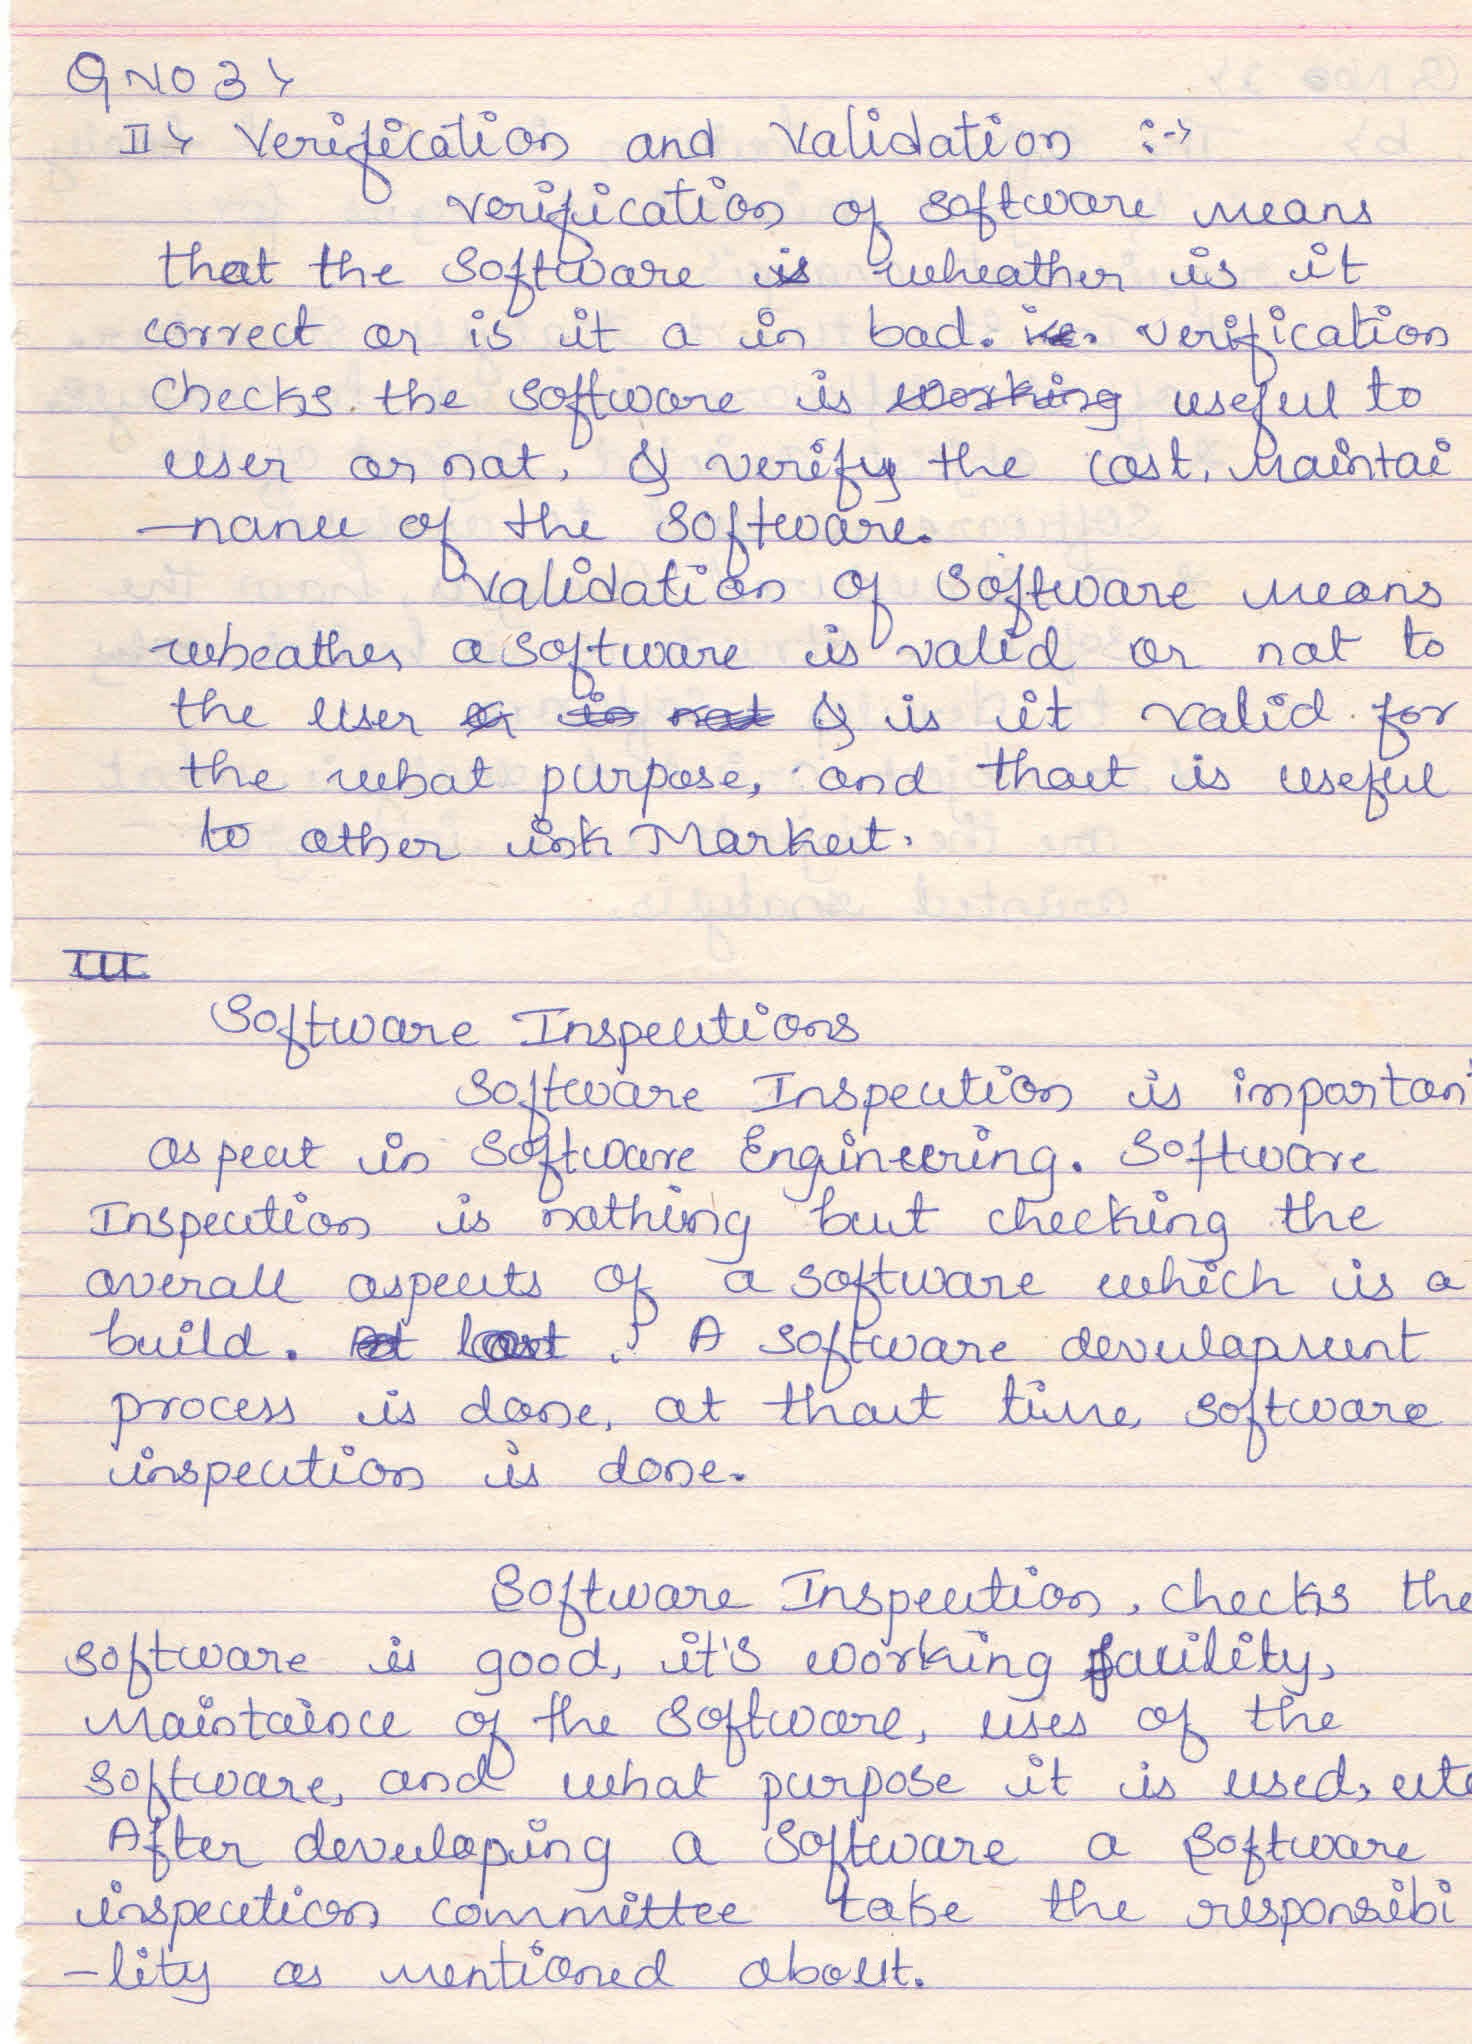 Q NO 3 >
II > Verification and Validation :->
Verification of software means
that the software is wheather is it
correct or is it a in bad. i.e. verification
checks the software is working useful to
user or not, & verify the cost, Maintai
-nance of the software.
Validation of software means
wheather a software is valid or not to
the user or is not & is it valid for
the what purpose, and that is useful
to other ink Market.
III
Software Inspections
Software Inspection is important
aspect in Software Engineering. Software
Inspection is nothing but checking the
overall aspects of a software which is a
build. At last . A software development
process is done, at that time, software
inspection is done.
Software Inspection, checks the
software is good, it's working facility,
Maintaince of the software, uses of the
software, and what purpose it is used, etc
After developing a software a software
inspection committee take the responsibi
-lity as mentioned about.